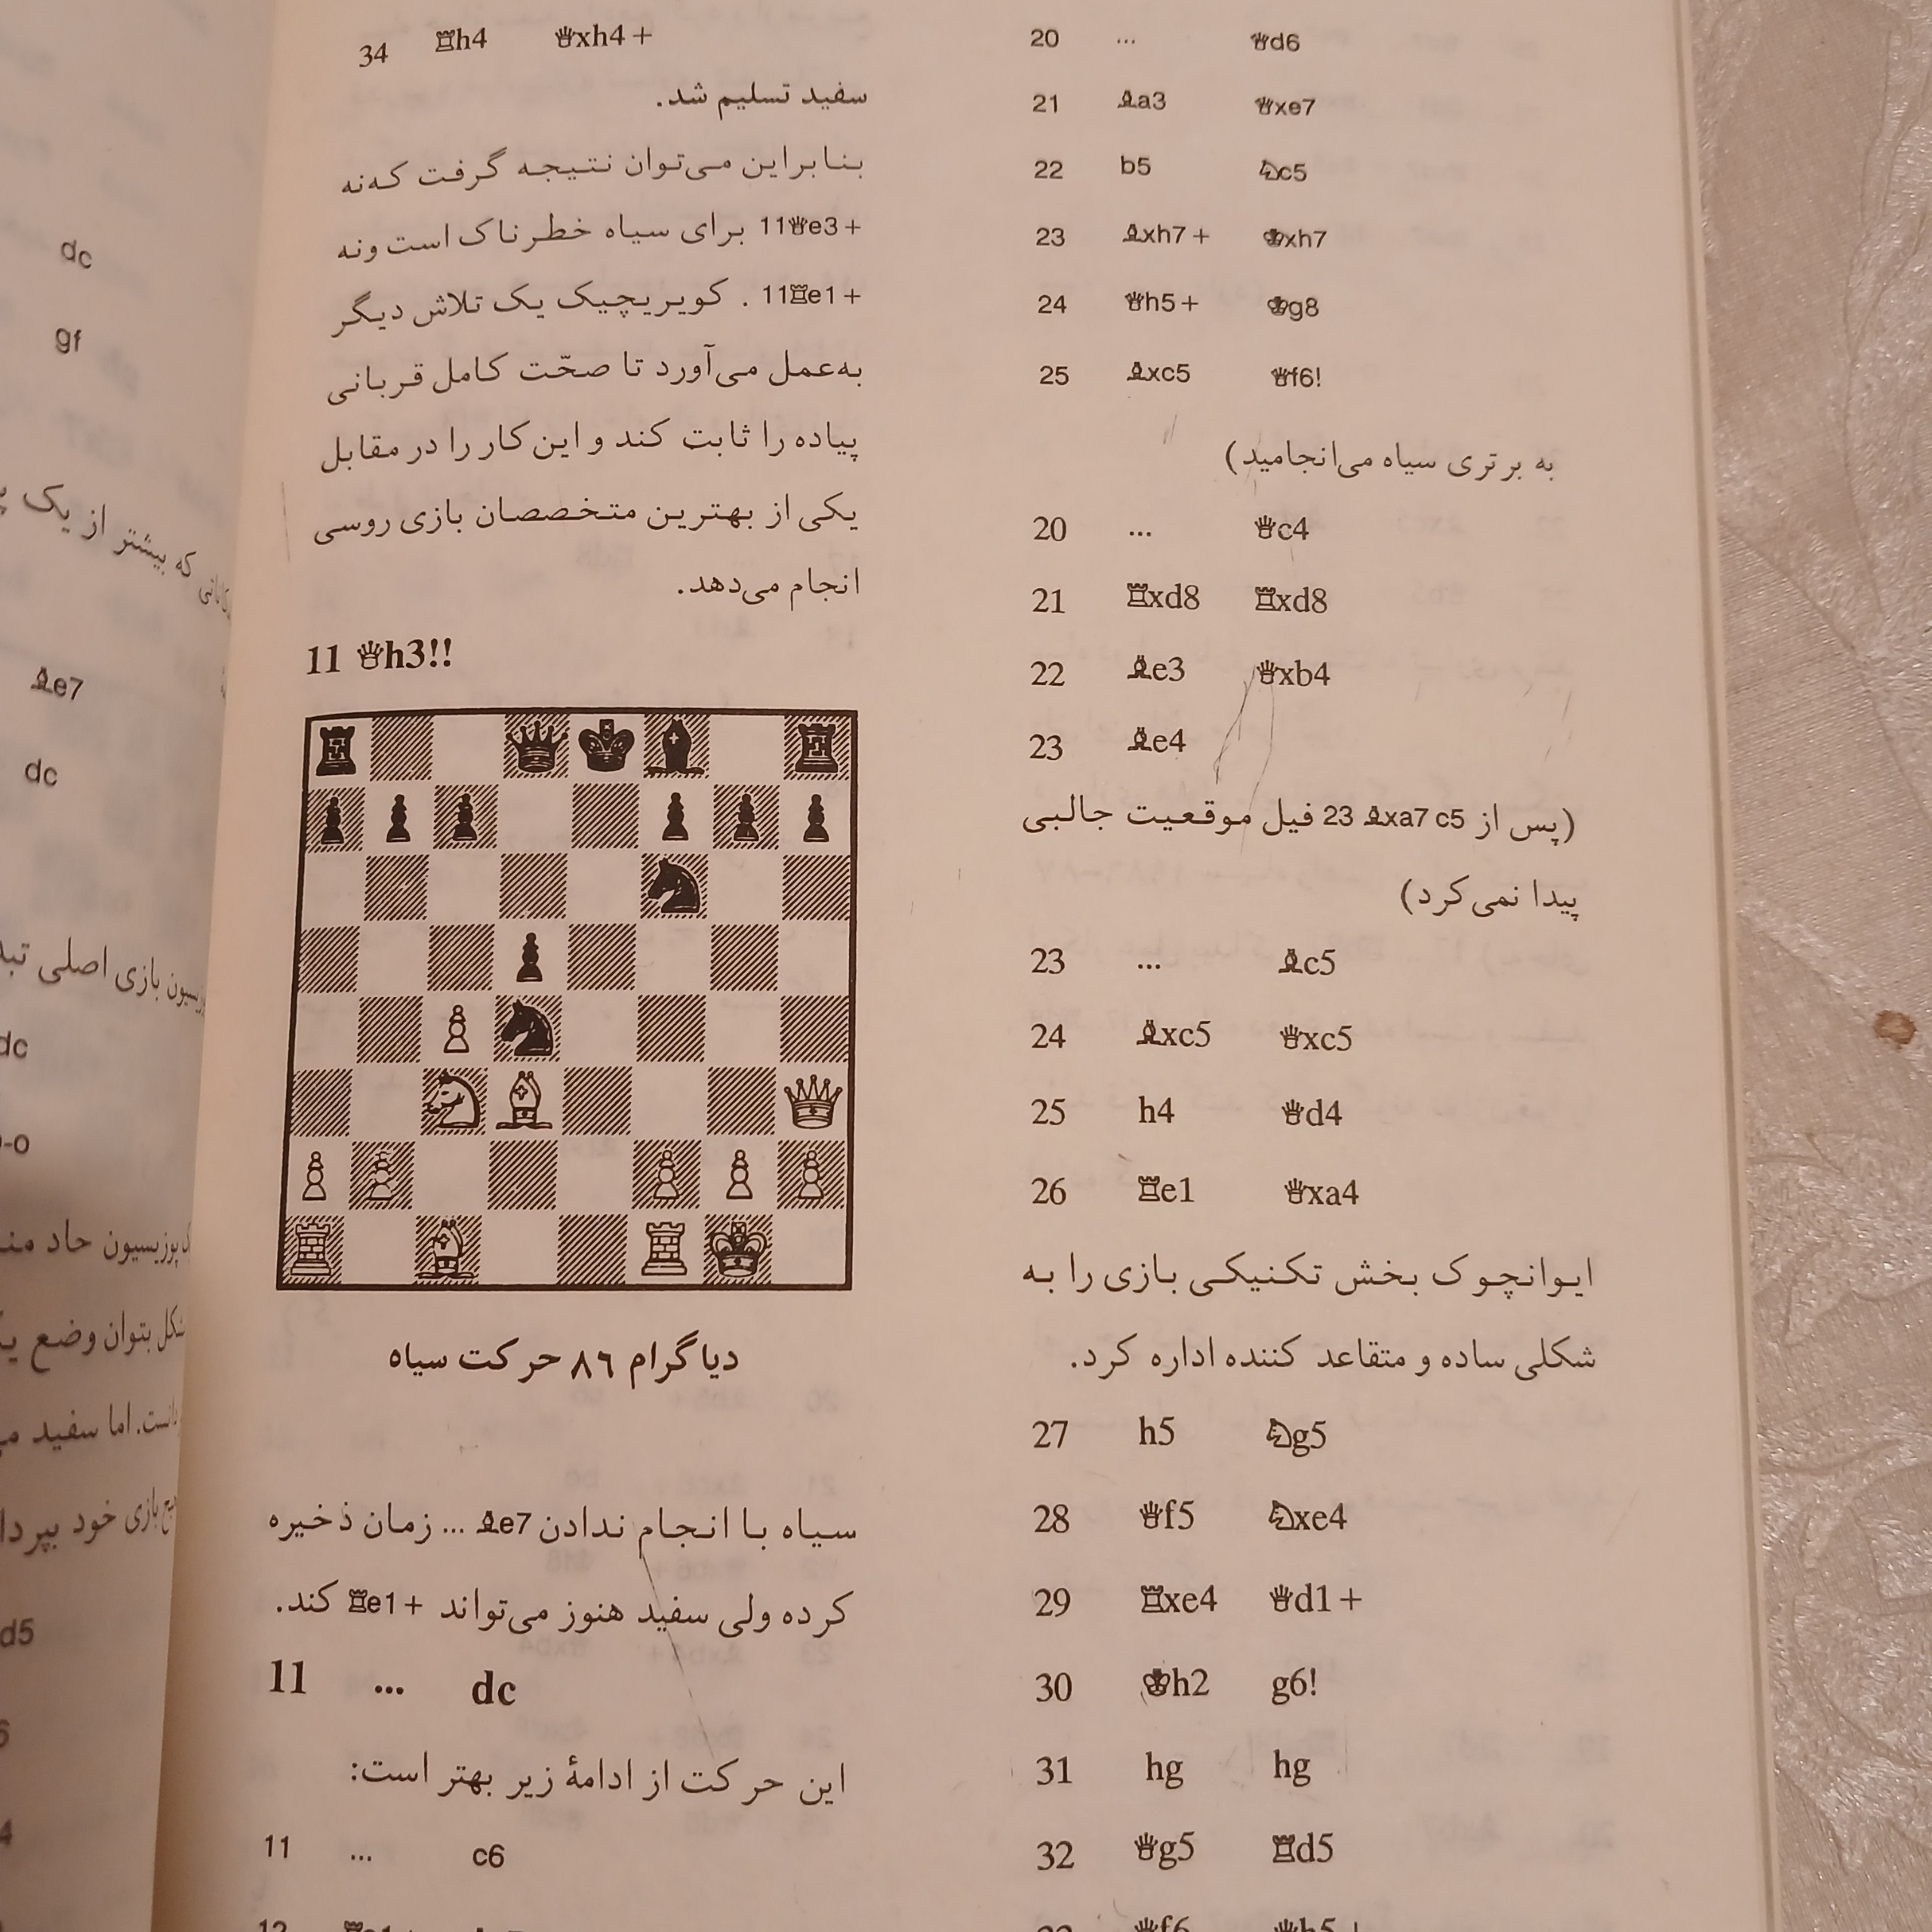 20 ... ♕d6
21 ♗a3 ♕xe7
22 b5 ♘c5
23 ♗xh7+ ♔xh7
24 ♕h5+ ♔g8
25 ♗xc5 ♕f6!
به برتری سیاه می‌انجامید)
20 ... ♕c4
21 ♖xd8 ♖xd8
22 ♗e3 ♕xb4
23 ♗e4
(پس از 23 ♗xa7 c5 فیل موقعیت جالبی
پیدا نمی‌کرد)
23 ... ♗c5
24 ♗xc5 ♕xc5
25 h4 ♕d4
26 ♖e1 ♕xa4
ایوانچوک بخش تکنیکی بازی را به
شکلی ساده و متقاعد کننده اداره کرد.
27 h5 ♘g5
28 ♕f5 ♘xe4
29 ♖xe4 ♕d1+
30 ♔h2 g6!
31 hg hg
32 ♕g5 ♖d5
♕f6 ♕h5+
34 ♖h4 ♕xh4+
سفید تسلیم شد.
بنابراین می‌توان نتیجه گرفت که‌نه
11♕e3+ برای سیاه خطرناک است ونه
11♖e1+ . کویریچیک یک تلاش دیگر
به‌عمل می‌آورد تا صحّت کامل قربانی
پیاده را ثابت کند و این کار را در مقابل
یکی از بهترین متخصصان بازی روسی
انجام می‌دهد.
11 ♕h3!!
دیاگرام ۸۶ حرکت سیاه
سیاه با انجام ندادن ♗e7 ... زمان ذخیره
کرده ولی سفید هنوز می‌تواند ♖e1+ کند.
11 ... dc
این حرکت از ادامهٔ زیر بهتر است:
11 ... c6
dc
gf
که بیشتر از یک
♗e7
dc
بازی اصلی
dc
پوزیسیون حاد
بتوان وضع
اما سفید
بازی خود
d5